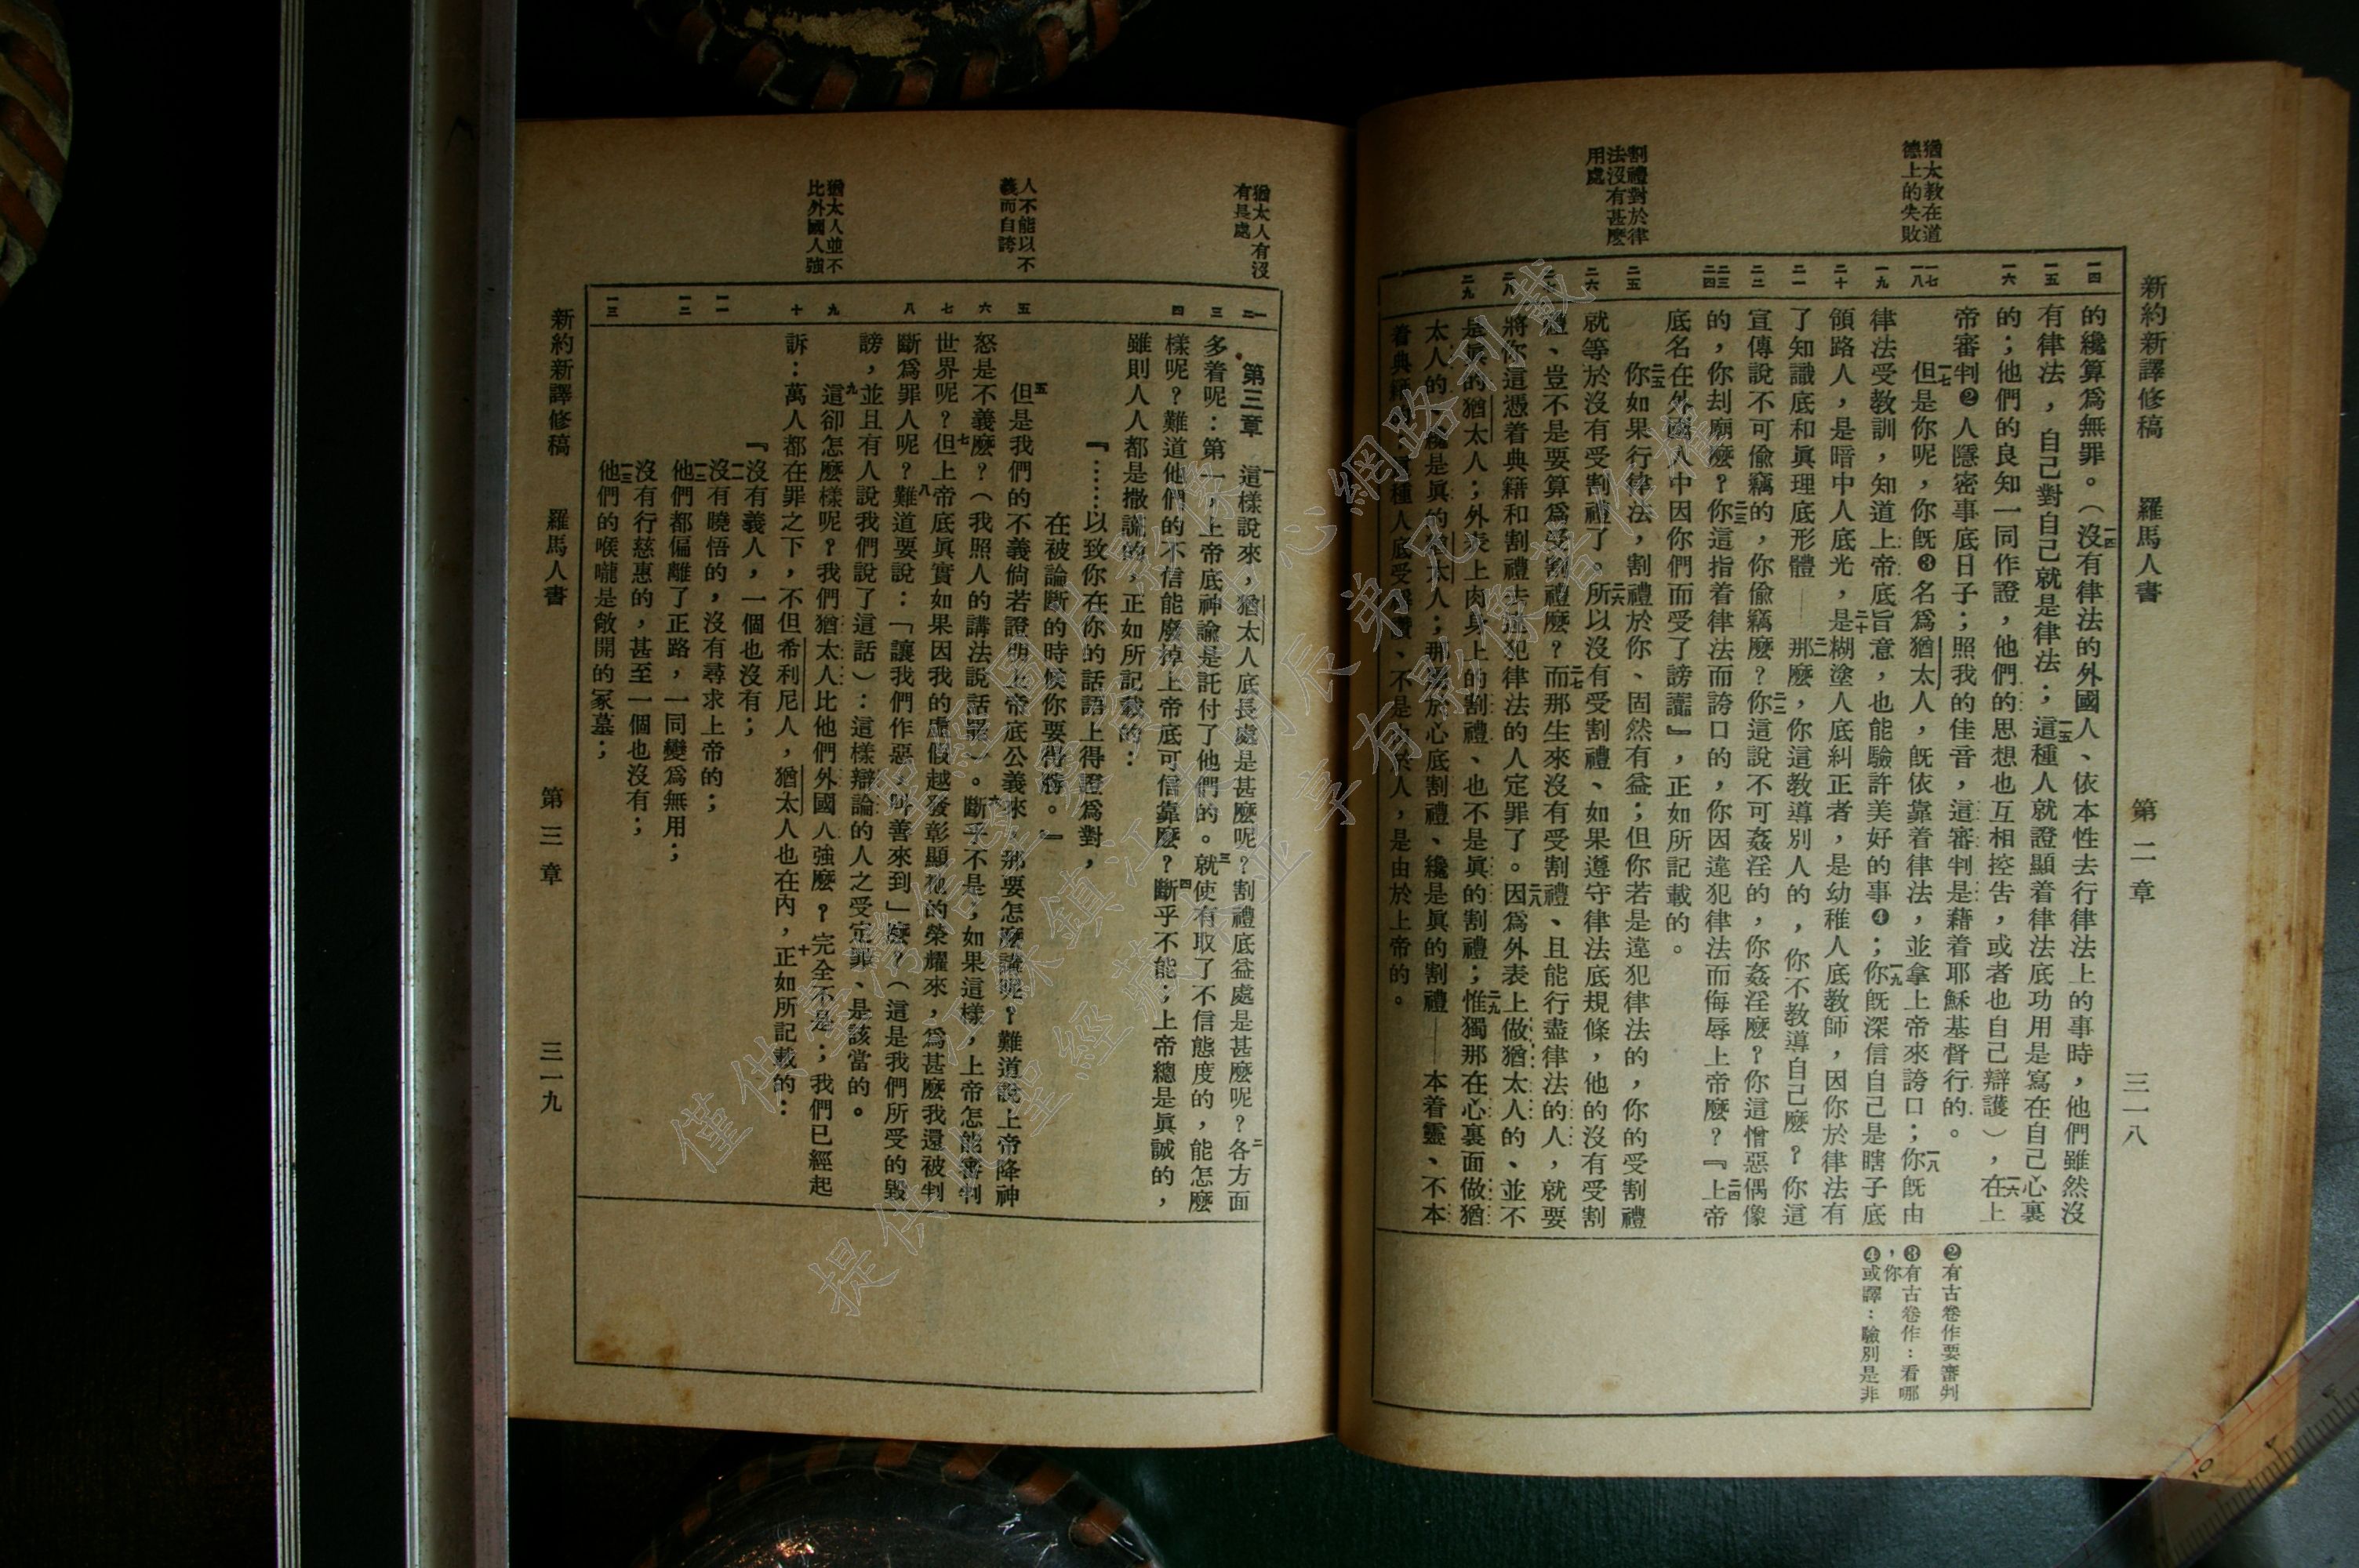 新約新譯修稿 羅馬人書 第二章 三一八
猶太教在道
德上的失敗
割禮對於律
法沒有甚麼
用處
一四
一五
一六
一七
一八
一九
二十
二一
二二
二三
二四
二五
二六
二七
二八
二九
的纔算爲無罪。(一四沒有律法的外國人、依本性去行律法上的事時,他們雖然沒
有律法,自己對自己就是律法;一五這種人就證顯着律法底功用是寫在自己心裏
的;他們的良知一同作證,他們的思想也互相控告,或者也自己辯護),一六在上
帝審判❷人隱密事底日子;照我的佳音,這審判是藉着耶穌基督行的。
一七但是你呢,你既❸名爲猶太人,既依靠着律法,並拿上帝來誇口;一八你既由
律法受教訓,知道上帝底旨意,也能驗許美好的事❹;一九你既深信自己是瞎子底
領路人,是暗中人底光,二十是糊塗人底糾正者,是幼稚人底教師,因你於律法有
了知識底和眞理底形體——二一那麼,你這教導別人的,你不教導自己麼?你這
宣傳說不可偷竊的,你偷竊麼?二二你這說不可姦淫的,你姦淫麼?你這憎惡偶像
的,你刦廟麼?二三你這指着律法而誇口的,你因違犯律法而侮辱上帝麼?『二四上帝
底名在外國人中因你們而受了謗讟』,正如所記載的。
二五你如果行律法,割禮於你、固然有益;但你若是違犯律法的,你的受割禮
就等於沒有受割禮了。二六所以沒有受割禮、如果遵守律法底規條,他的沒有受割
禮、豈不是要算爲受割禮麼?二七而那生來沒有受割禮、且能行盡律法的人,就要
將你這憑着典籍和割禮去違犯律法的人定罪了。二八因爲外表上做猶太人的、並不
是眞的猶太人;外表上肉身上的割禮、也不是眞的割禮;二九惟獨那在心裏面做猶
太人的、纔是眞的猶太人;那屬於心底割禮、纔是眞的割禮——本着靈、不本
着典籍的;這種人底受稱讚、不是由於人,是由於上帝的。
❷有古卷作要審判
❸有古卷作:看哪
,你
❹或譯:驗別是非
猶太人有沒
有長處
人不能以不
義而自誇
猶太人並不
比外國人強
一
二
三
四
五
六
七
八
九
十
一一
一二
一三
第三章 一這樣說來,猶太人底長處是甚麼呢?割禮底益處是甚麼呢?二各方面
多着呢:第一,上帝底神諭是託付了他們的。三就使有取了不信態度的,能怎麼
樣呢?難道他們的不信能廢掉上帝底可信靠麼?四斷乎不能;上帝總是眞誠的,
雖則人人都是撒謊的,正如所記載的:
『……以致你在你的話語上得證爲對,
在被論斷的時候你要得勝。』
五但是我們的不義倘若證明上帝底公義來,那要怎麼說呢?難道說上帝降神
怒是不義麼?(我照人的講法說話罷)。六斷乎不是,如果這樣,上帝怎能審判
世界呢?七但上帝底眞實如果因我的虛假越發彰顯祂的榮耀來,爲甚麼我還被判
斷爲罪人呢?八難道要說:「讓我們作惡,叫善來到」麼?(這是我們所受的毀
謗,並且有人說我們說了這話):這樣辯論的人之受定罪、是該當的。
九這卻怎麼樣呢?我們猶太人比他們外國人強麼?完全不是;我們已經起
訴:萬人都在罪之下,不但希利尼人,猶太人也在內,十正如所記載的:
『沒有義人,一個也沒有;
一一沒有曉悟的,沒有尋求上帝的;
一二他們都偏離了正路,一同變爲無用;
沒有行慈惠的,甚至一個也沒有;
一三他們的喉嚨是敞開的冢墓;
新約新譯修稿 羅馬人書 第三章 三一九